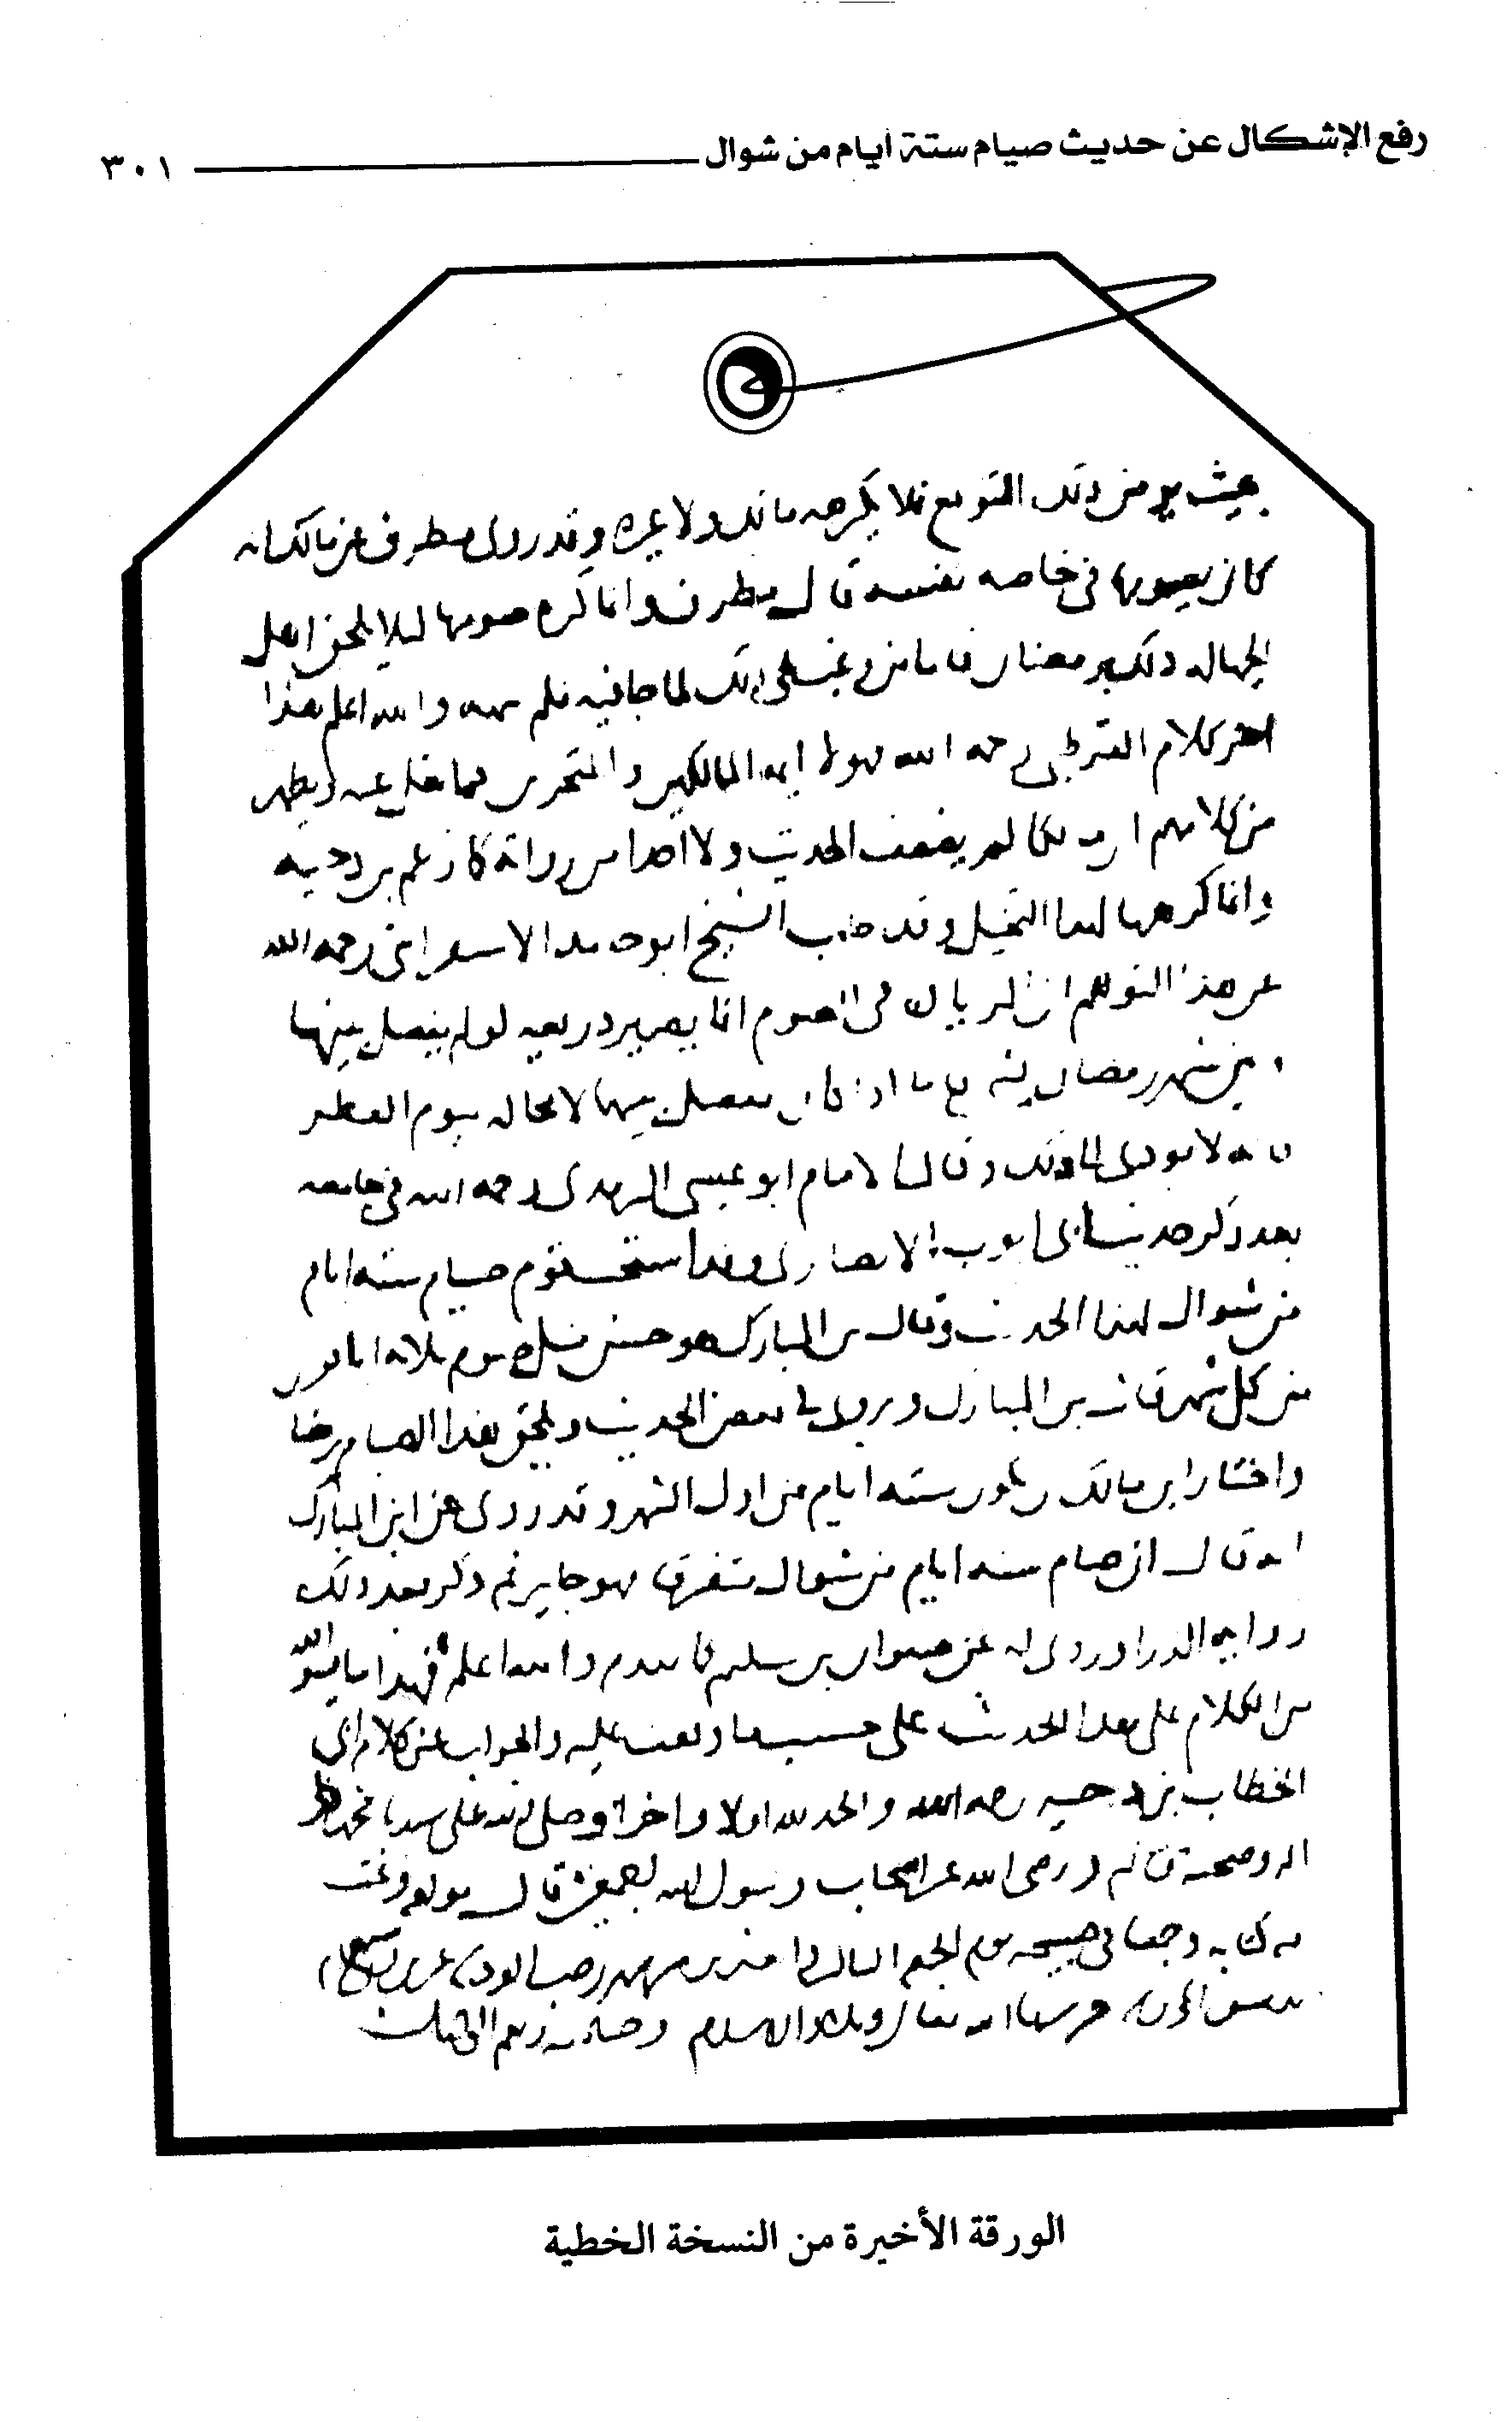 رفع الإشكال عن حديث صيام ستة أيام من شوال ٣٠١
بحيث يومن ذلك التوقع فلا يكرهه مالك ولا غيره وقد روى مطرف عن مالك انه
كان يصومها في خاصه نفسه قال مطرف وانما كره صومها ليلا يلحق اهل
الجهاله ذلك برمضان فاما من رغب في ذلك لما جا فيه فلم ينهه والله اعلم هذا
اخر كلام القرطبي رحمه الله فهولا ايمه المالكيين
من كلامهم ان مالكا لم يضعف الحديث ولا احدا من رواته كما زعم بن دحيه
وانما كرهها لهذا التخيل وقد اجاب الشيخ ابو حامد الاسفرايني رحمه الله
عن هذا التوهم في الصوم انما يصير ذريعه لو لم يفصل بينها
وبين شهر رمضان بشي فاما اذا كان يفصل بينهما لا محاله بيوم الفطر
فانه لا يودي الى ذلك وقال الامام ابو عيسى الترمذي رحمه الله في جامعه
بعد ذكر حديث ابي ايوب الانصاري وقد استحب قوم صيام سته ايام
من شوال لهذا الحديث وقال بن المبارك هو حسن مثل صوم ثلاثه ايام
من كل شهر قال بن المبارك ويروى في بعض الحديث ويلحق هذا الصيام برمضا
واختار ابن المبارك ان يكون سته ايام من اول الشهر وقد روى عن ابن المبارك
انه قال ان صام سته ايام من شوال متفرقا فهو جايز ثم ذكر بعد ذلك
روايه الدراوردي له عن صفوان بن سليم كما تقدم والله اعلم فهذا ما يسر الله
من الكلام على هذا الحديث على حسب ما وقعت عليه والجواب عن كلام ابي
الخطاب بن دحيه رحمه الله والحمد لله اولا واخرا وصلى الله على سيدنا محمد
اله وصحبه ورضي الله عن اصحاب رسول الله اجمعين قال مولفه فرغت
من كتابه وجمعه في صبيحه يوم الجمعه
بدمشق حرسها الله تعالى وبلاد الاسلام
الورقة الأخيرة من النسخة الخطية